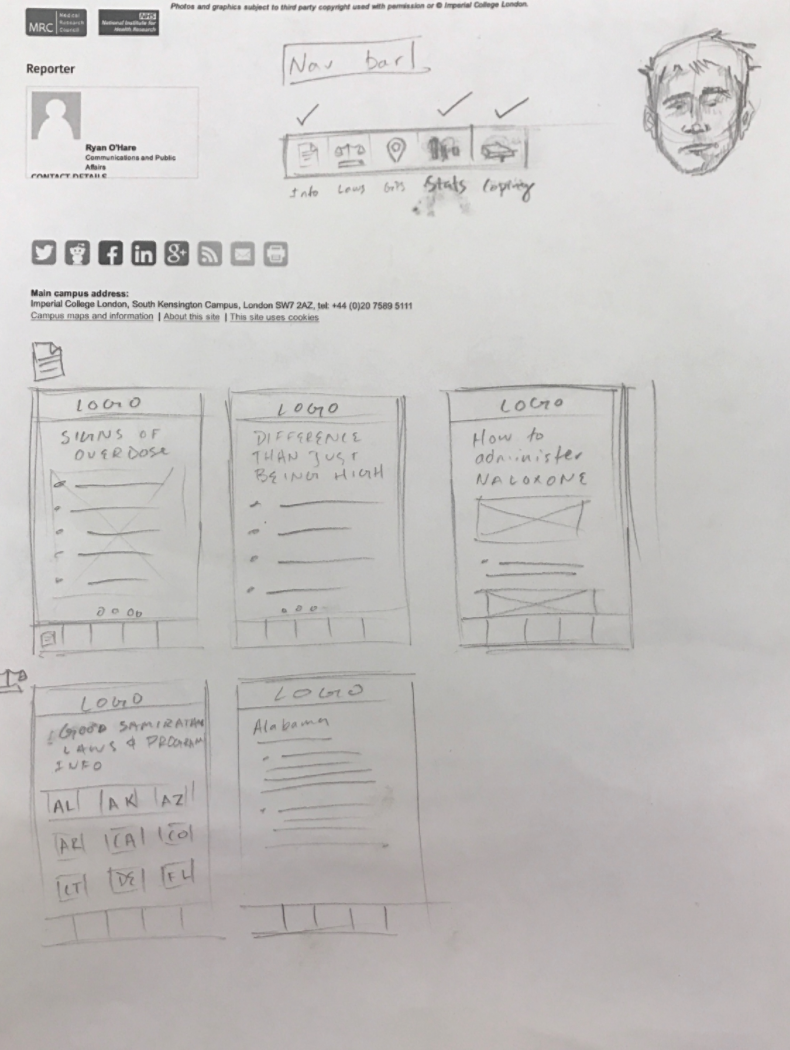 Photos and graphics subject to third party copyright used with permission or © Imperial College London.
MRC Medical Research Council
NHS
National Institute for Health Research
Reporter
Ryan O'Hare
Communications and Public
Affairs
CONTACT DETAILS
Nav bar
Info Laws GPS Stats Coping
Main campus address:
Imperial College London, South Kensington Campus, London SW7 2AZ, tel: +44 (0)20 7589 5111
Campus maps and information | About this site | This site uses cookies
LOGO
SIGNS OF
OVERDOSE
LOGO
DIFFERENCE
THAN JUST
BEING HIGH
LOGO
How to
administer
NALOXONE
LOGO
GOOD SAMIRATAN
LAWS & PROGRAM
INFO
AL AK AZ
AR CA CO
CT DE FL
LOGO
Alabama